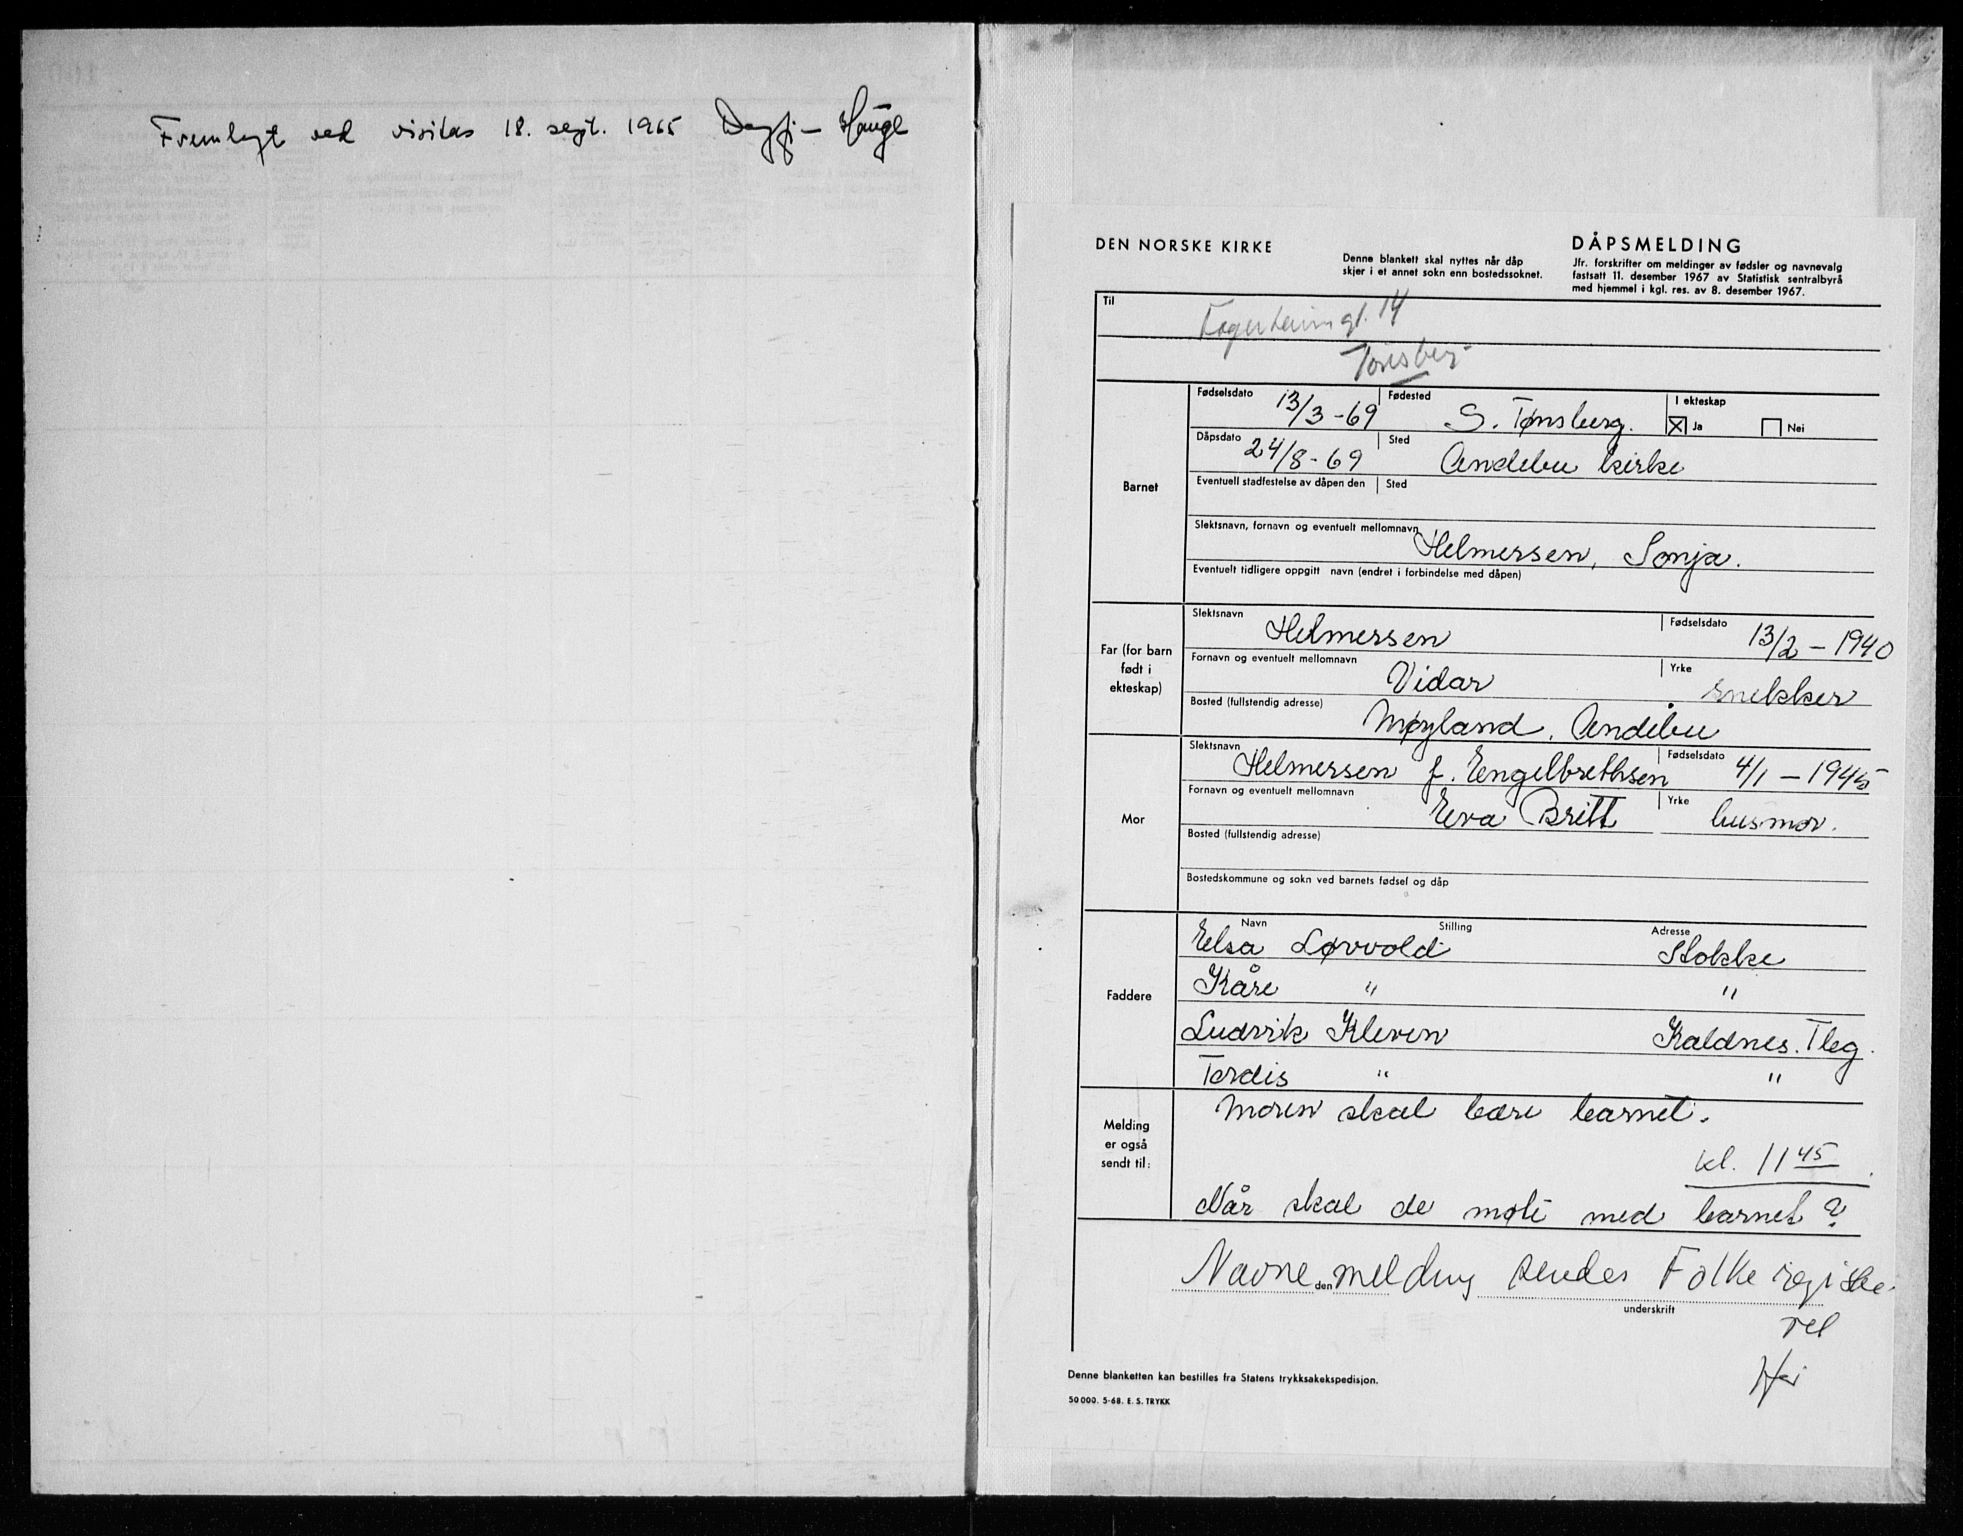 Fremlagt ved visitas 18. sept. 1965 Dagfi- Hauge
DEN NORSKE KIRKE
Denne blankett skal nyttes når dåp
skjer i et annet sokn enn bostedssoknet.
DÅPSMELDING
Jfr. forskrifter om meldinger av fødsler og navnevalg
fastsatt 11. desember 1967 av Statistisk sentralbyrå
med hjemmel i kgl. res. av 8. desember 1967.
Til
Fagerheimgt. 14
Tønsberg
Barnet
Fødselsdato 13/3-69 Fødested S. Tønsberg. I ekteskap Ja Nei
Dåpsdato 24/8-69 Sted Andebu kirke
Eventuell stadfestelse av dåpen den Sted
Slektsnavn, fornavn og eventuelt mellomnavn Helmersen, Sonja.
Eventuelt tidligere oppgitt navn (endret i forbindelse med dåpen)
Far (for barn
født i
ekteskap)
Slektsnavn Helmersen Fødselsdato 13/2-1940
Fornavn og eventuelt mellomnavn Vidar Yrke snekker
Bosted (fullstendig adresse) Møyland, Andebu
Mor
Slektsnavn Helmersen f. Engelbrethsen Fødselsdato 4/1-1945
Fornavn og eventuelt mellomnavn Eva Britt Yrke husmor.
Bosted (fullstendig adresse)
Bostedskommune og sokn ved barnets fødsel og dåp
Faddere
Navn Stilling Adresse
Elsa Løvvold Stokke
Kåre " "
Ludvik Kleven Kaldnes. Tbg.
Tordis " "
Melding
er også
sendt til:
Moren skal bære barnet.
kl. 11 45
Når skal de møte med barnet?
Navnemelding sendes Folkeregiste-
den
underskrift
ret
Denne blanketten kan bestilles fra Statens trykksakekspedisjon.
50 000. 5-68. E. S. TRYKK